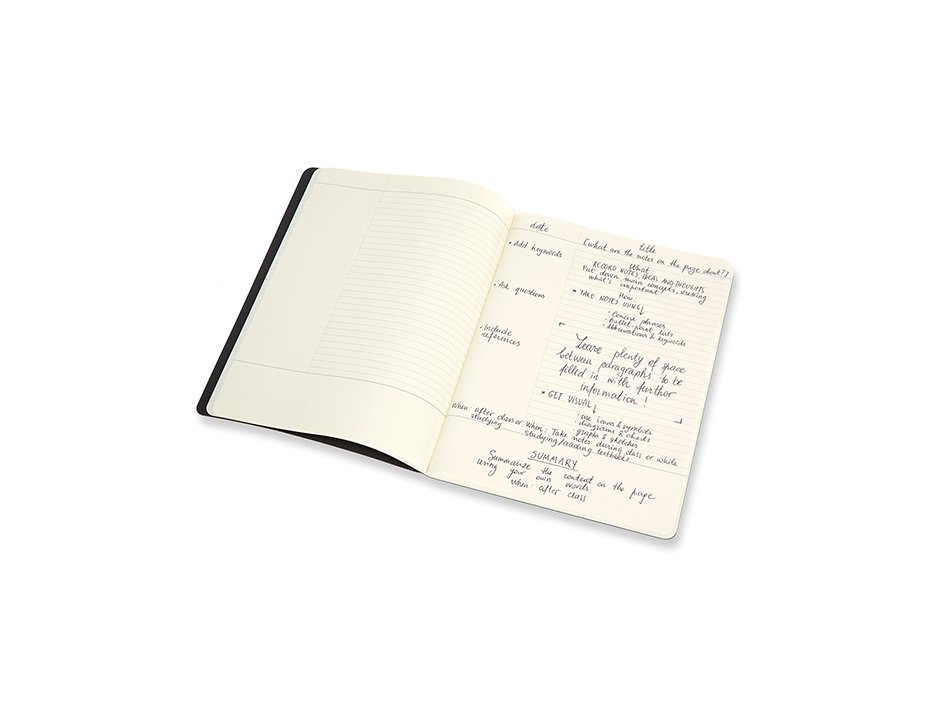 date
• Add keywords
• Ask questions
• Include
references
When: after class or
studying
title
[what are the notes on the page about?]
What:
RECORD NOTES, IDEAS AND THOUGHTS
Put down main concepts, stressing
what's important
How:
* TAKE NOTES USING↓
• Concise phrases
• Bullet-point lists
• Abbreviations & keywords
Leave plenty of space
between paragraphs to be
filled in with further
information!
* GET VISUAL↓
• use icons & symbols
• diagrams & charts
• graphs & sketches
When: Take notes during class or while
studying/reading textbooks.
SUMMARY
Summarize the content on the page
using your own words.
When: after class